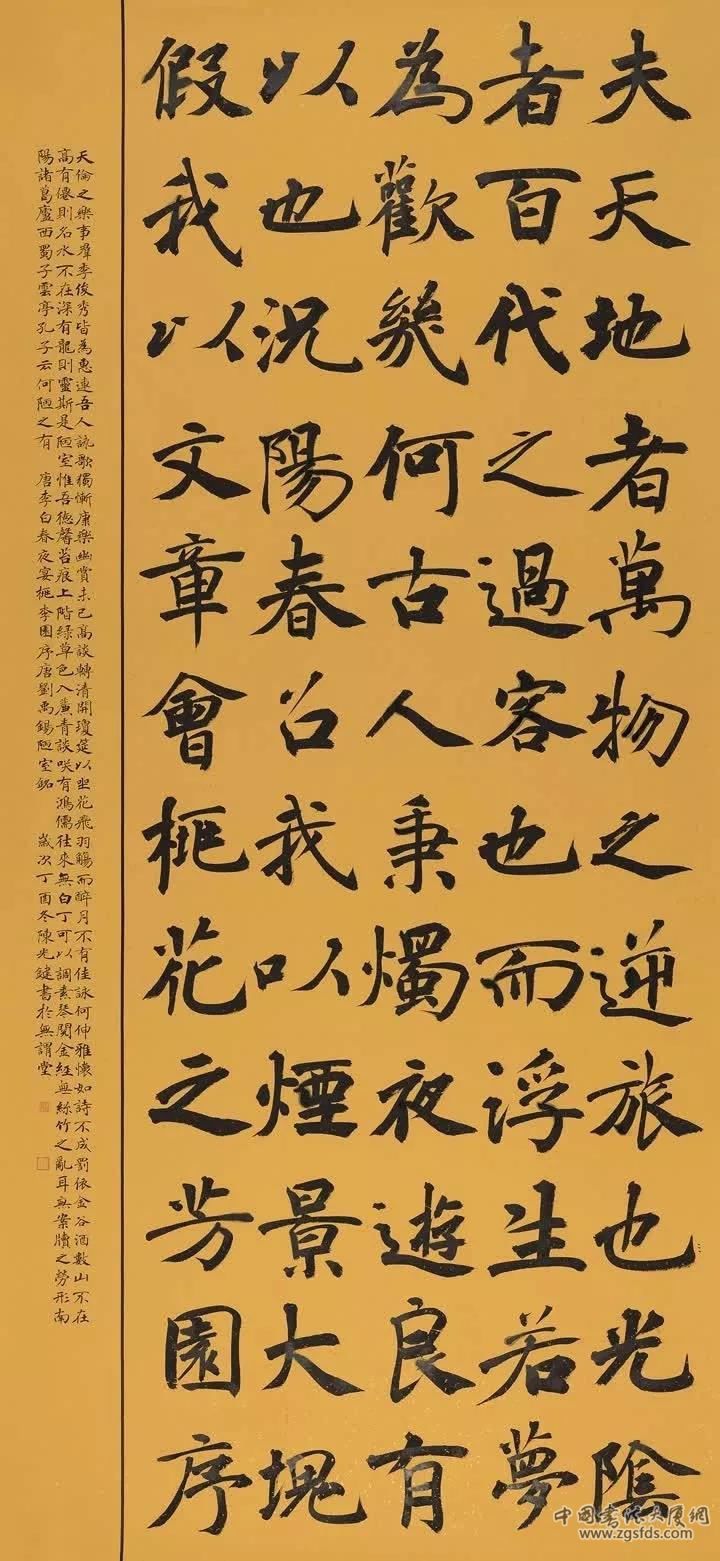 夫天地者萬物之逆旅也光陰
者百代之過客也而浮生若夢
為歡幾何古人秉燭夜遊良有
以也況陽春召我以煙景大塊
假我以文章會桃花之芳園序
天倫之樂事羣季俊秀皆為惠連吾人詠歌獨慚康樂幽賞未已高談轉清開瓊筵以坐花飛羽觴而醉月不有佳詠何仲雅懷如詩不成罰依金谷酒數山不在
高有僊則名水不在深有龍則靈斯是陋室惟吾德馨苔痕上階綠草色入簾青談咲有鴻儒往來無白丁可以調素琴閱金經無絲竹之亂耳無案牘之勞形南
陽諸葛廬西蜀子雲亭孔子云何陋之有 唐李白春夜宴桃李園序唐劉禹錫陋室銘 歲次丁酉冬陳光鍵書於無謂堂
中国书法大厦網
www.zgsfds.com